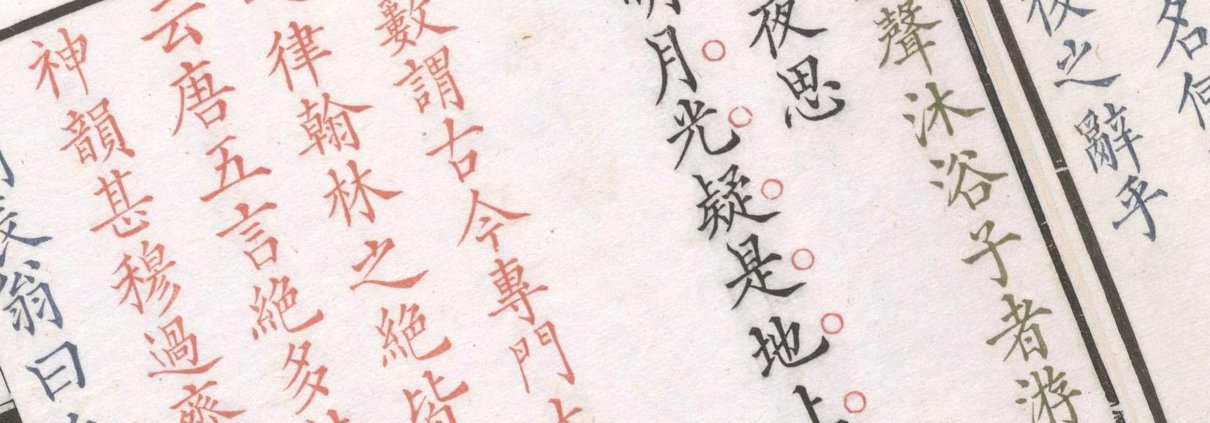 名
夜之辭乎
聲沐浴子者游
夜思
明月光疑是地上
數謂古今專門
律翰林之絕皆
云唐五言絕多
神韻甚穆過齊
長翁曰